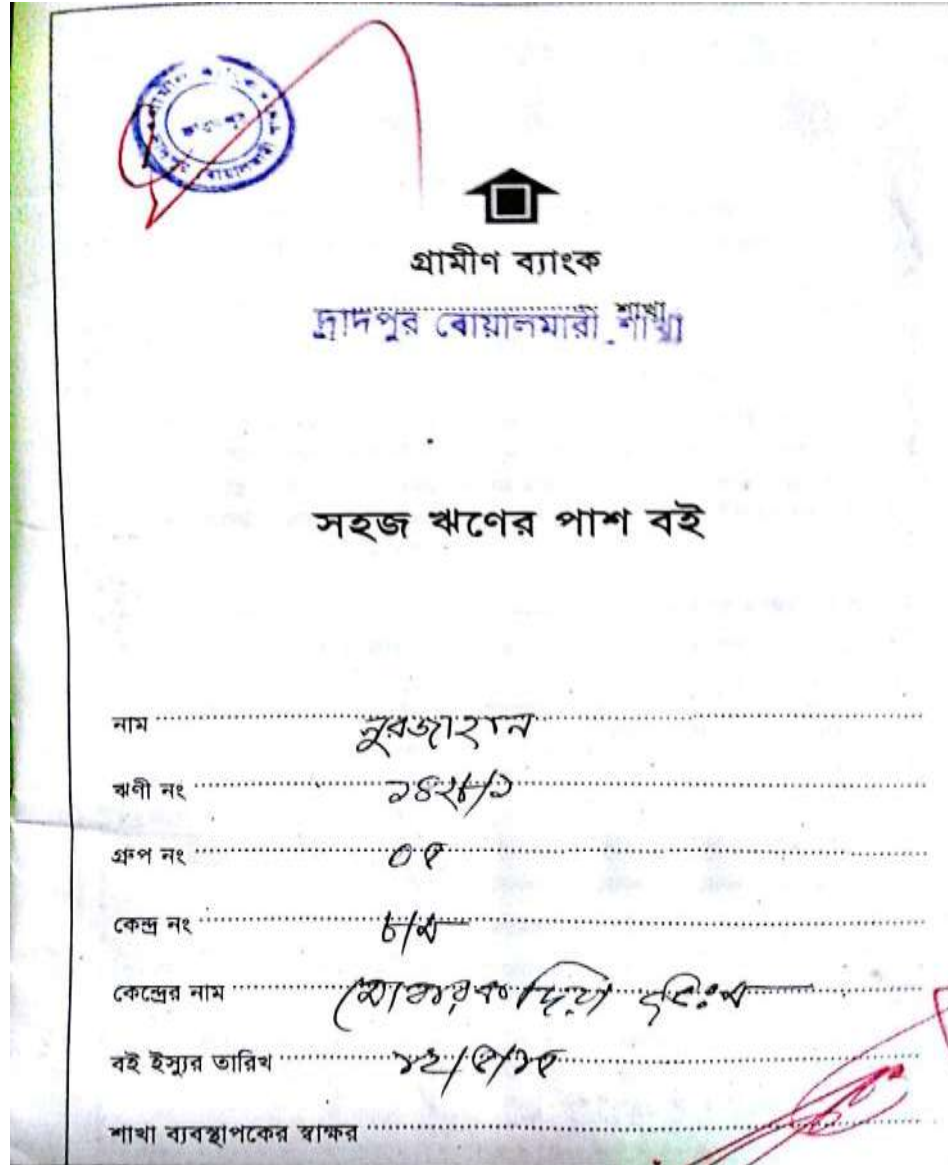 গ্রামীণ ব্যাংক
শাখা
দাদপুর বোয়ালমারী শাখা
সহজ ঋণের পাশ বই
নাম নুরজাহান
ঋণী নং ১৪২৮/১
গ্রুপ নং ০৫
কেন্দ্র নং ৮/ম
কেন্দ্রের নাম
বই ইস্যুর তারিখ ১২/৫/১৫
শাখা ব্যবস্থাপকের স্বাক্ষর